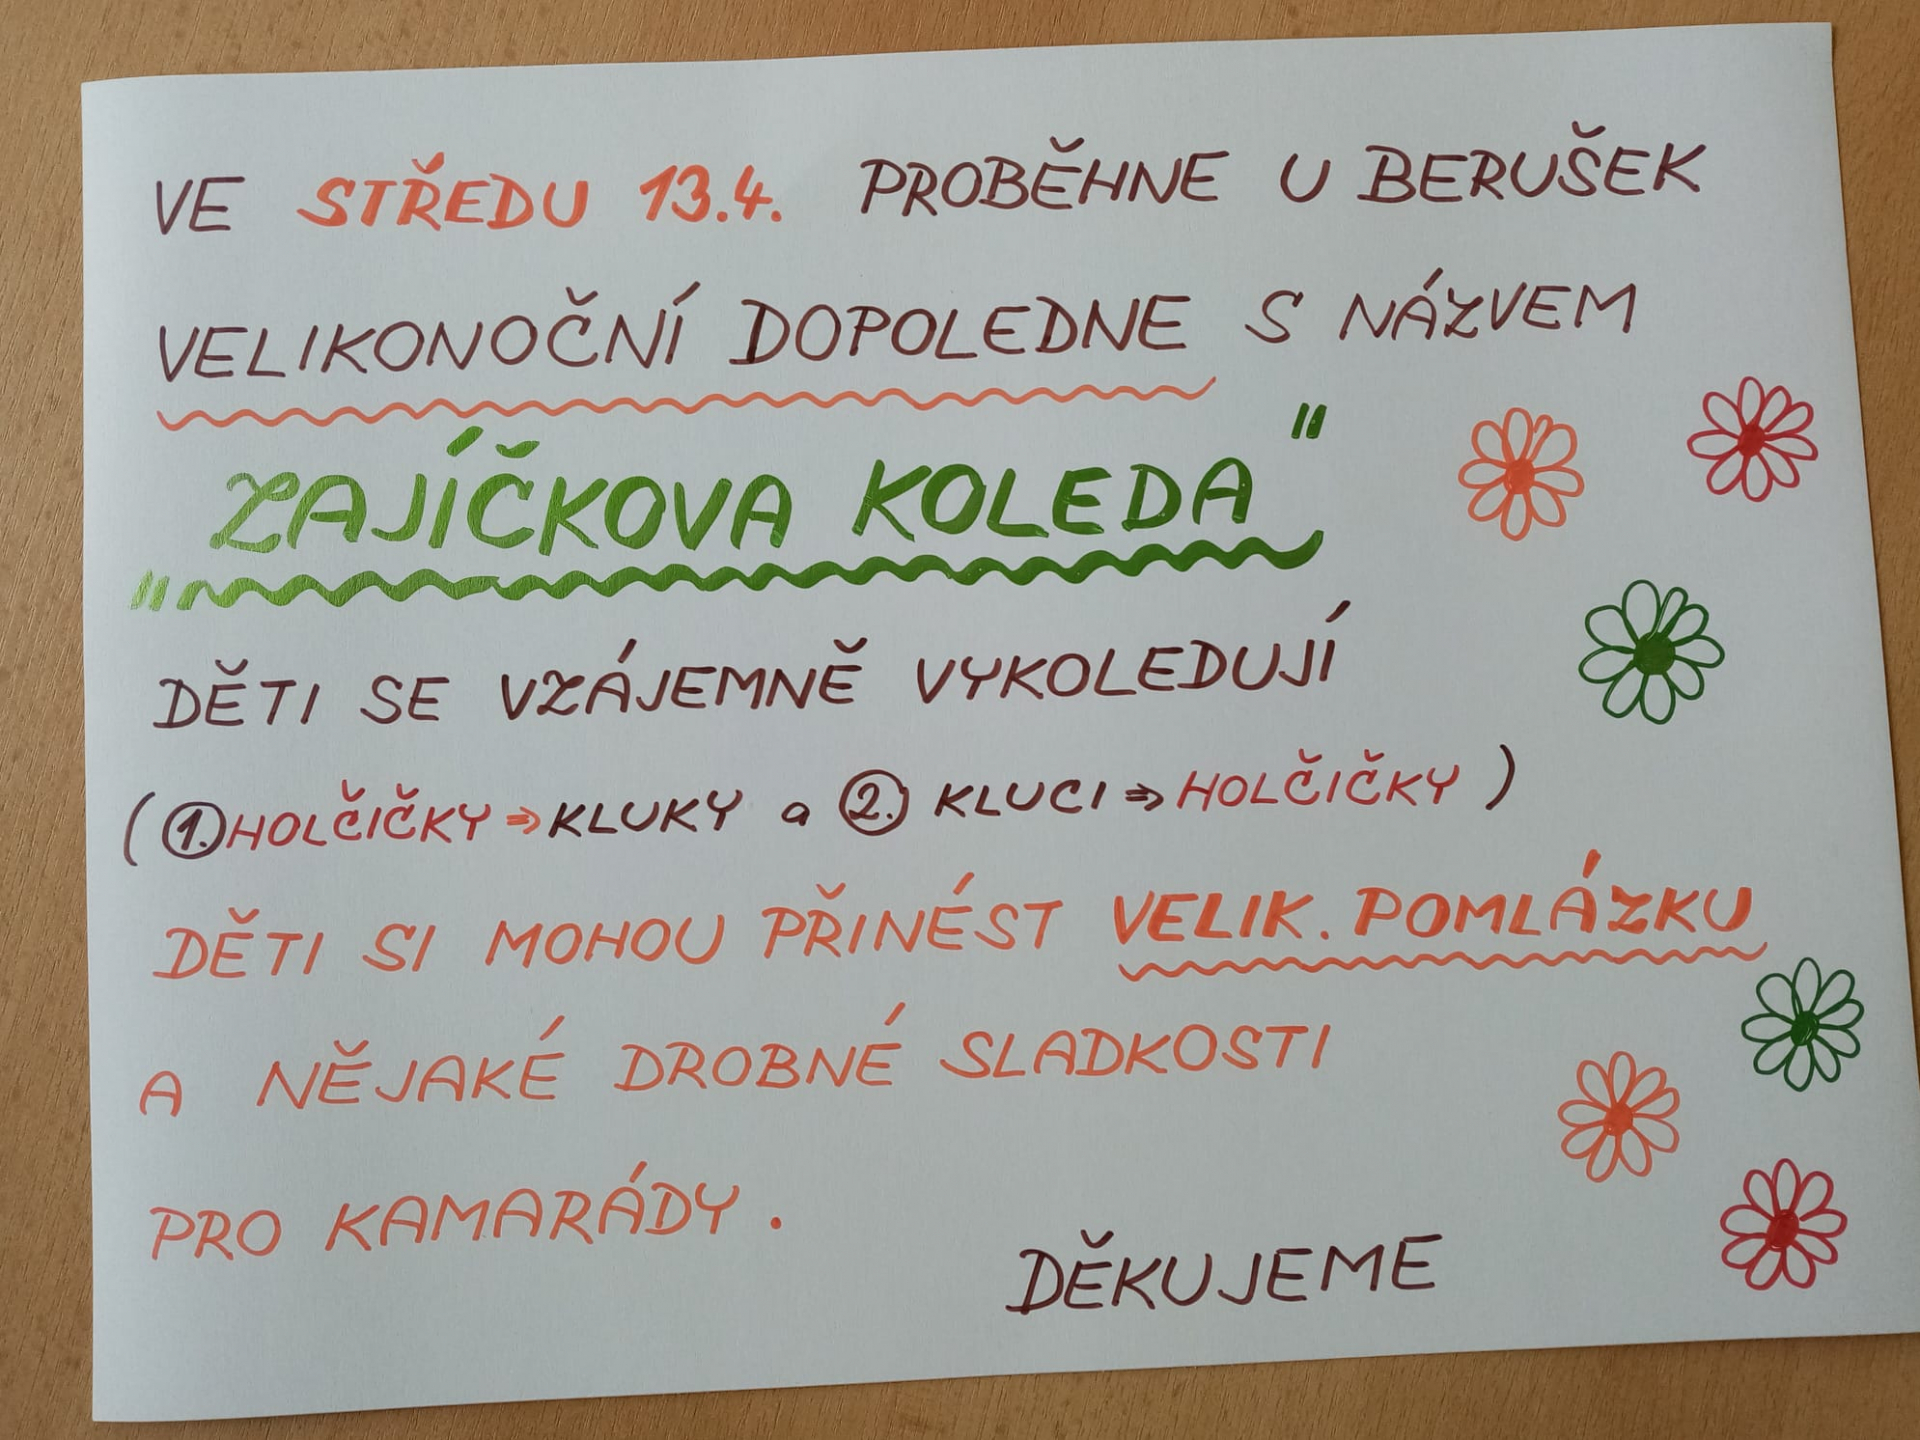 VE STŘEDU 13.4. PROBĚHNE U BERUŠEK
VELIKONOČNÍ DOPOLEDNE S NÁZVEM
"ZAJÍČKOVA KOLEDA"
DĚTI SE VZÁJEMNĚ VYKOLEDUJÍ
(1. HOLČIČKY ⇒ KLUKY a 2. KLUCI ⇒ HOLČIČKY)
DĚTI SI MOHOU PŘINÉST VELIK. POMLÁZKU
A NĚJAKÉ DROBNÉ SLADKOSTI
PRO KAMARÁDY.
DĚKUJEME